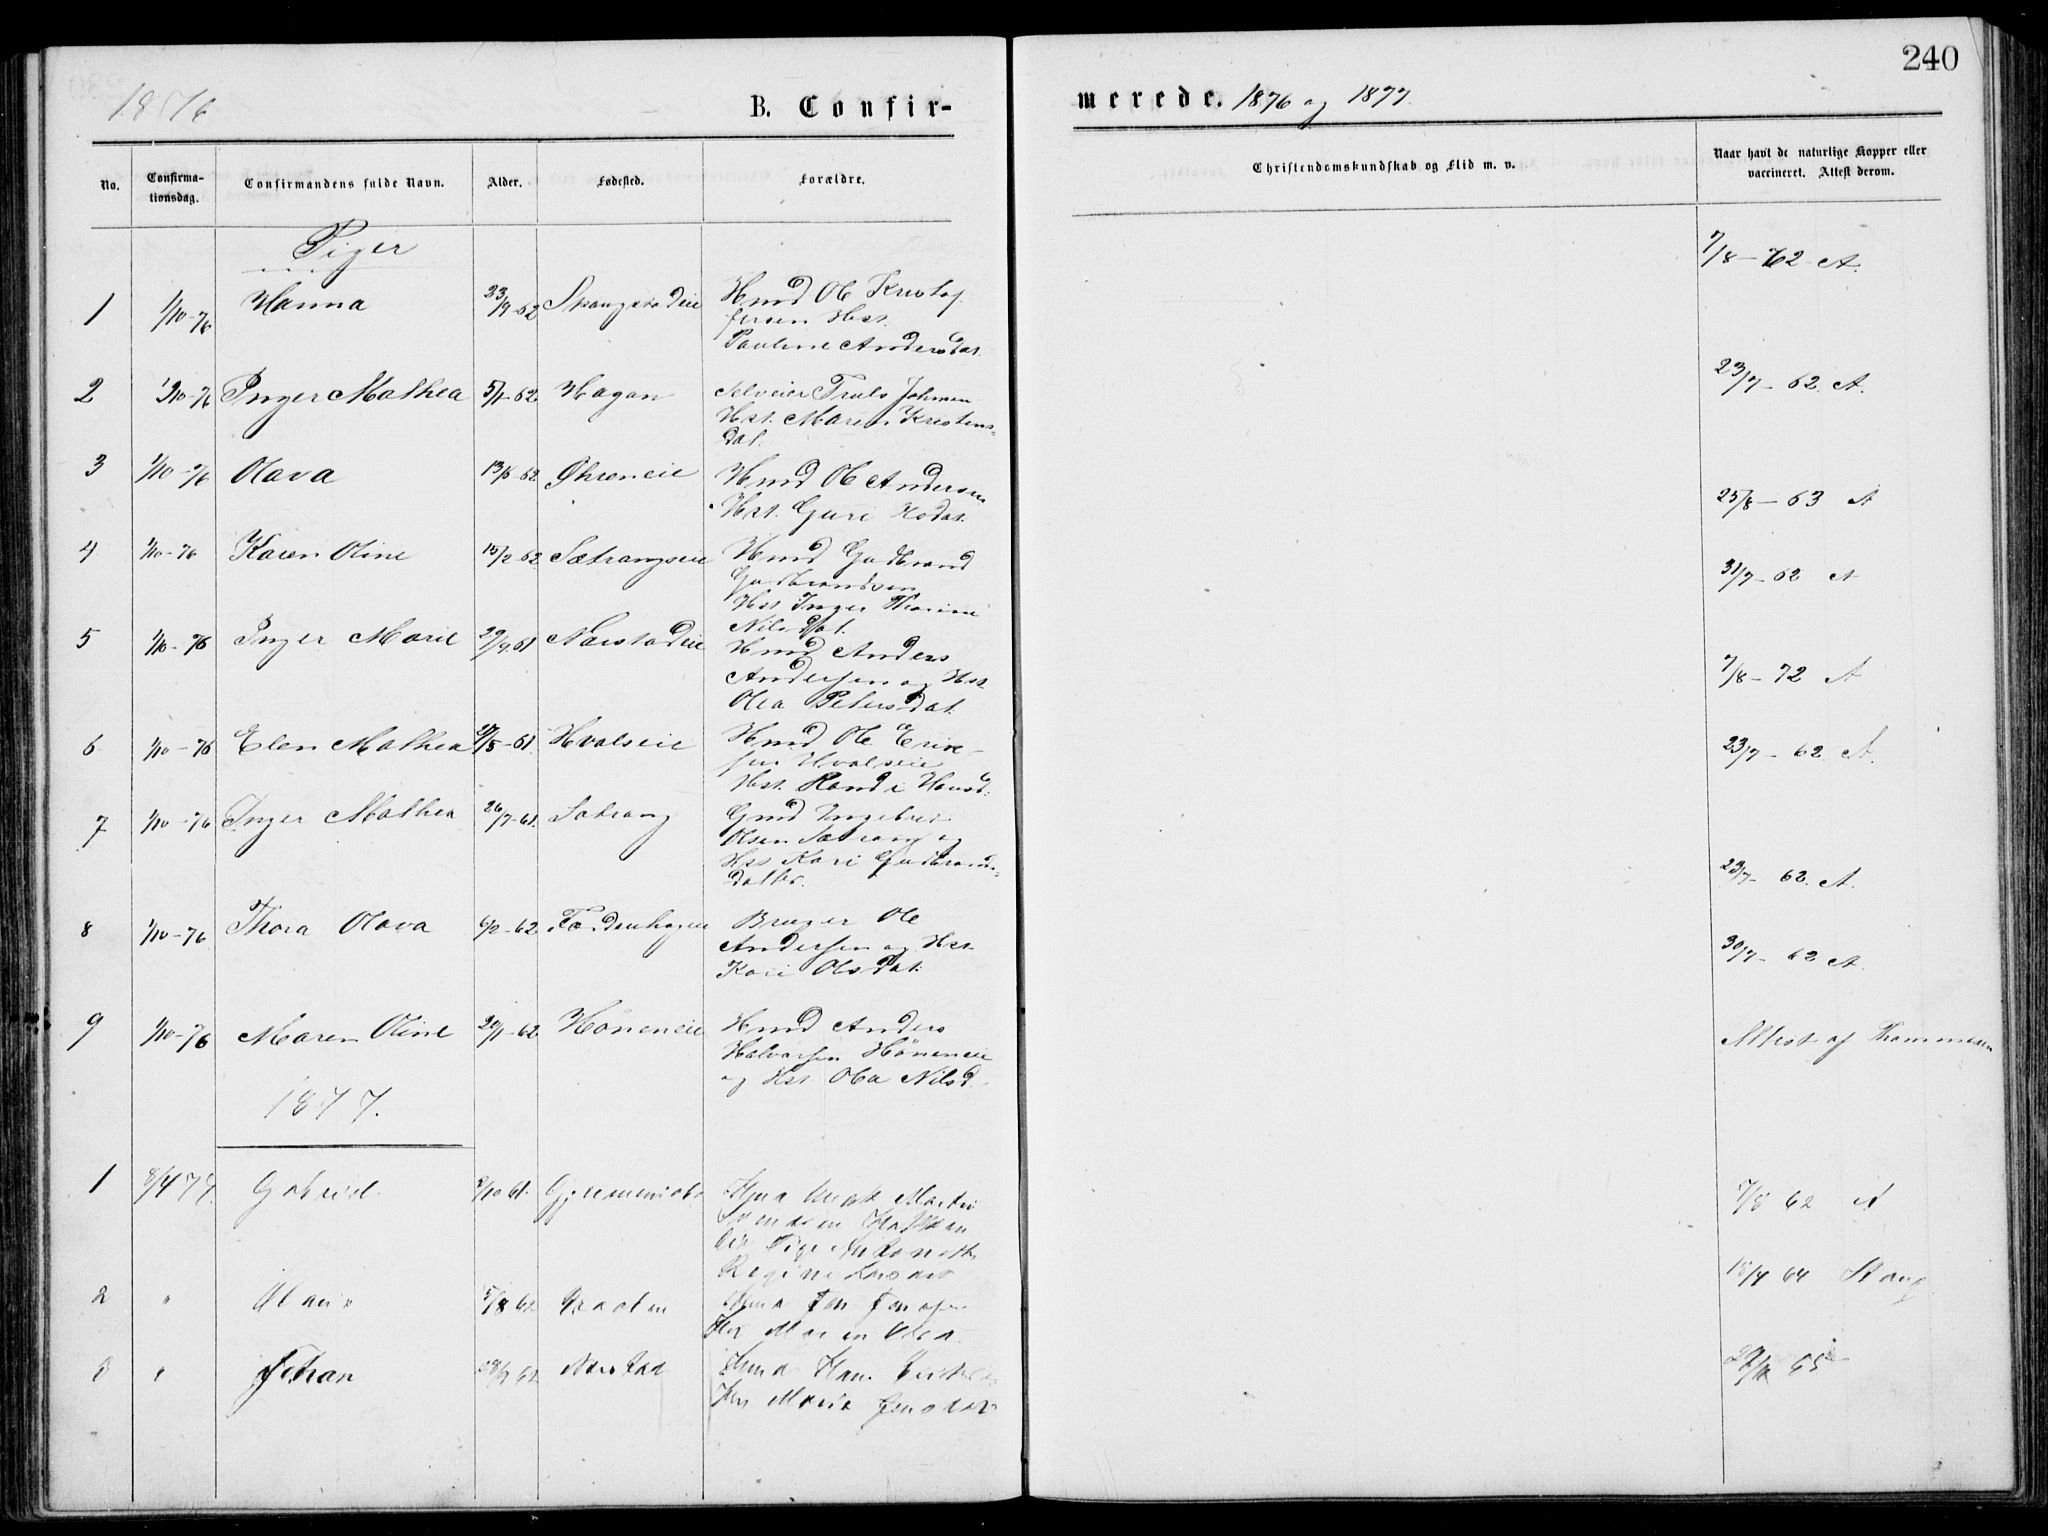 240
1876
B. Confir-
merede. 1876 og 1877.
No.
Confirma-
tionsdag.
Confirmandens fulde Navn.
Alder.
Fødested.
Forældre.
Christendomskundskab og Flid m. v.
Naar havt de naturlige Kopper eller
vaccineret. Attest derom.
Piger
1 1/10-76 Hanna 23/9-62
Hmd Ole Kristof
fersen Hst.
Pauline Andersdat.
7/8-62 A.
2 1/10-76 Inger Mathea 5/1-62 Hagan
Selveier Truls Johnsen
Hst. Maren Kristens=
dat.
23/7-62. A.
3 1/10-76 Olava 13/6-62 Øhreneie
Hmd Ole Andersen
Hst. Guri
25/8-63 A
4 1/10-76 Karen Oline 15/2-62 Sætrangseie
Hmd Gudbrand
Gudbrandsen
Hst Inger Thorine
Nilsdat.
31/7-62 A
5 1/10-76 Inger Marie 29/9.61 Narstadeie
Hmd Anders
Andersen og Hst
Olea Petersdat.
7/8-72 A
6 1/10-76 Elen Mathea /8-61. Hvalseie
Hmd Ole Erik-
sen Hvalseie
Hst. Randi Hansd:
23/7-62. A.
7 1/10-76 Inger Mathea 26/7-61. Sætrang
Gmd Ingebret
Olsen Sætrang og
Hst Kari Gudbrands=
datter.
23/7-62. A.
8 1/10-76 Thora Olava 6/2-62 Færdenhagen
Bruger Ole
Andersen og Hst
Kari Olsdat.
30/7-62 A.
9 1/10-76 Maren Oline 20/1-62 Høneneie
Hmd Anders
Halvorsen Høneneie
og Hst Olea Nilsd.
Attest af Thommesen
1877.
1 8/4 77. Gabriel. /10 61.
Martin
Svendsen
Pige
Regine Larsdat
7/8 62 A
2 " 5/8 62
Hmd Jon
Hst Maren
15/4 64 Stang
3 " Johan 28/9 62. Narstad
Hmd Hans
Hst Maria
65